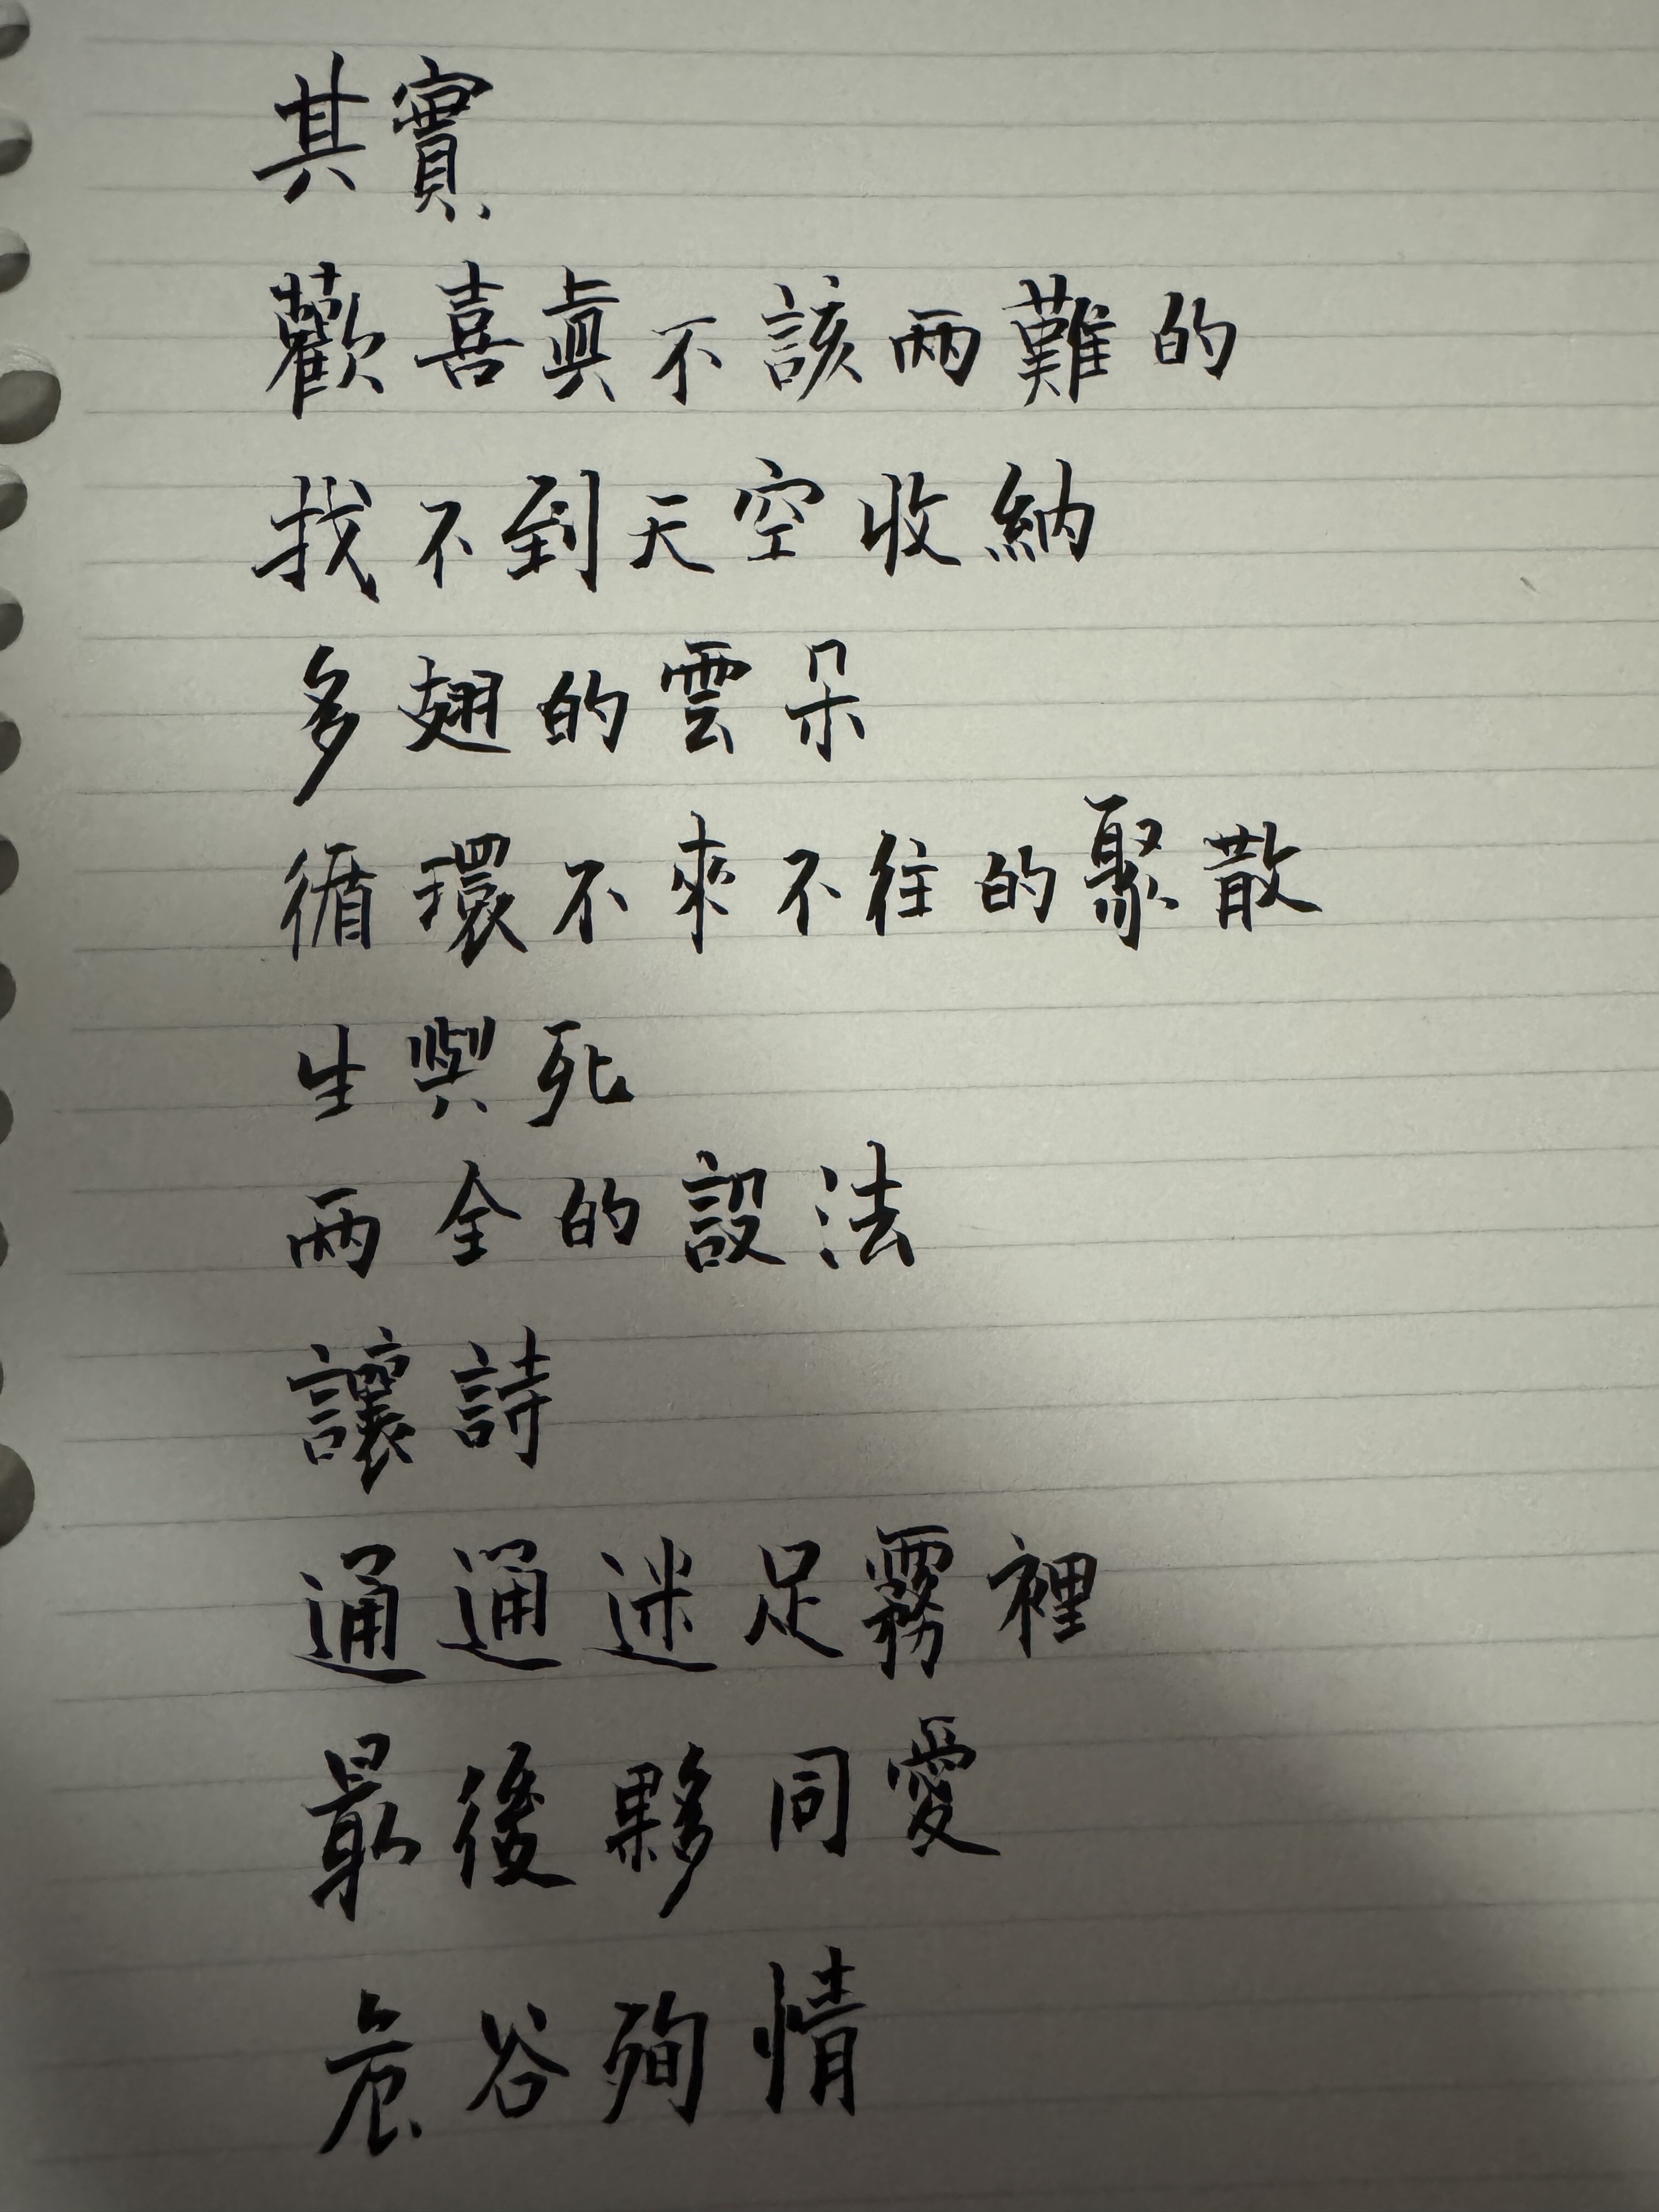 其實
歡喜真不該兩難的
找不到天空收納
多翅的雲朵
循環不來不往的聚散
生與死
兩全的設法
讓詩
通通迷足霧裡
最後夥同愛
危谷殉情